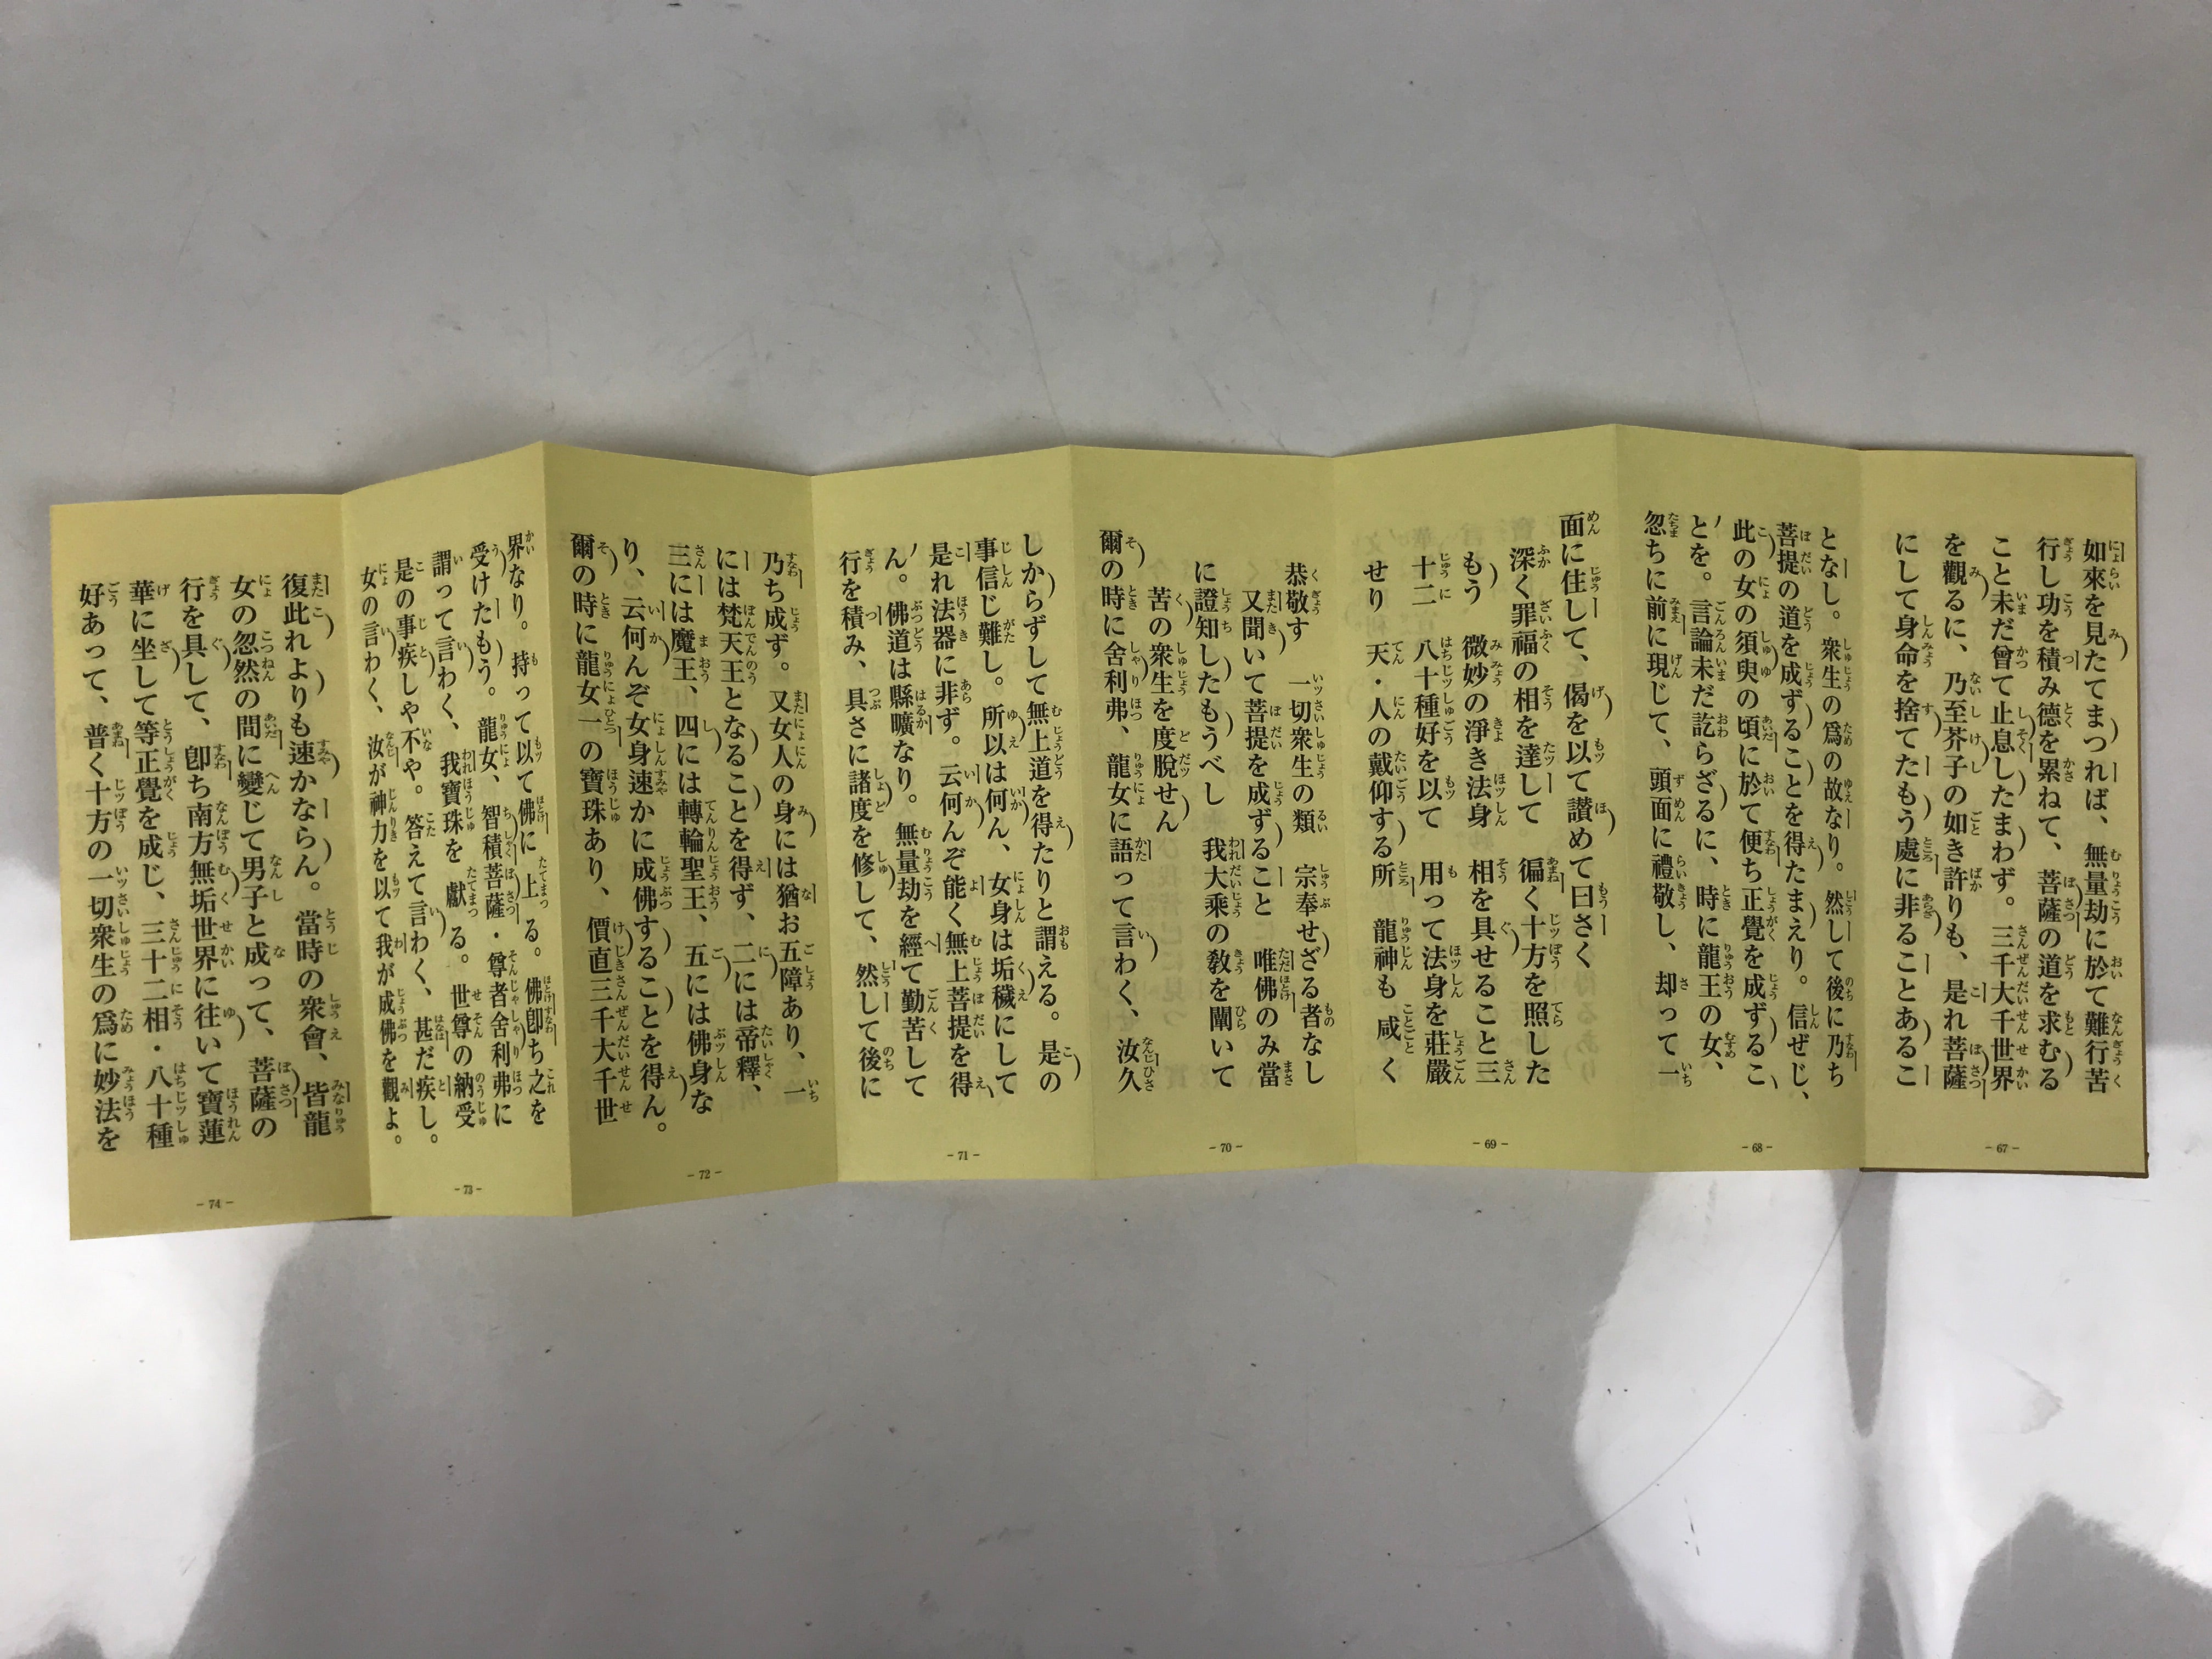 如來を見たてまつれば、無量劫に於て難行苦
行し功を積み德を累ねて、菩薩の道を求むる
こと未だ曾て止息したまわず。三千大千世界
を觀るに、乃至芥子の如き許りも、是れ菩薩
にして身命を捨てたもう處に非ることあるこ
-67-
となし。衆生の爲の故なり。然して後に乃ち
菩提の道を成ずることを得たまえり。信ぜじ、
此の女の須臾の頃に於て便ち正覺を成ずるこ
とを。言論未だ訖らざるに、時に龍王の女、
忽ちに前に現じて、頭面に禮敬し、却って一
-68-
面に住して、偈を以て讃めて曰さく
深く罪福の相を達して 徧く十方を照した
もう 微妙の淨き法身 相を具せること三
十二 八十種好を以て 用って法身を莊嚴
せり 天・人の戴仰する所 龍神も咸く
-69-
恭敬す 一切衆生の類 宗奉せざる者なし
又聞いて菩提を成ずること 唯佛のみ當
に證知したもうべし 我大乘の教を闡いて
苦の衆生を度脫せん
爾の時に舍利弗、龍女に語って言わく、汝久
-70-
しからずして無上道を得たりと謂える。是の
事信じ難し。所以は何ん、女身は垢穢にして
是れ法器に非ず。云何んぞ能く無上菩提を得
ん。佛道は縣曠なり。無量劫を經て勤苦して
行を積み、具さに諸度を修して、然して後に
-71-
乃ち成ず。又女人の身には猶お五障あり、一
には梵天王となることを得ず、二には帝釋、
三には魔王、四には轉輪聖王、五には佛身な
り、云何んぞ女身速かに成佛することを得ん。
爾の時に龍女一の寶珠あり、價直三千大千世
-72-
界なり。持って以て佛に上る。佛卽ち之を
受けたもう。龍女、智積菩薩・尊者舍利弗に
謂って言わく、我寶珠を獻る。世尊の納受
是の事疾しや不や。答えて言わく、甚だ疾し。
女の言わく、汝が神力を以て我が成佛を觀よ。
-73-
復此れよりも速かならん。當時の衆會、皆龍
女の忽然の間に變じて男子と成って、菩薩の
行を具して、卽ち南方無垢世界に往いて寶蓮
華に坐して等正覺を成じ、三十二相・八十種
好あって、普く十方の一切衆生の爲に妙法を
-74-